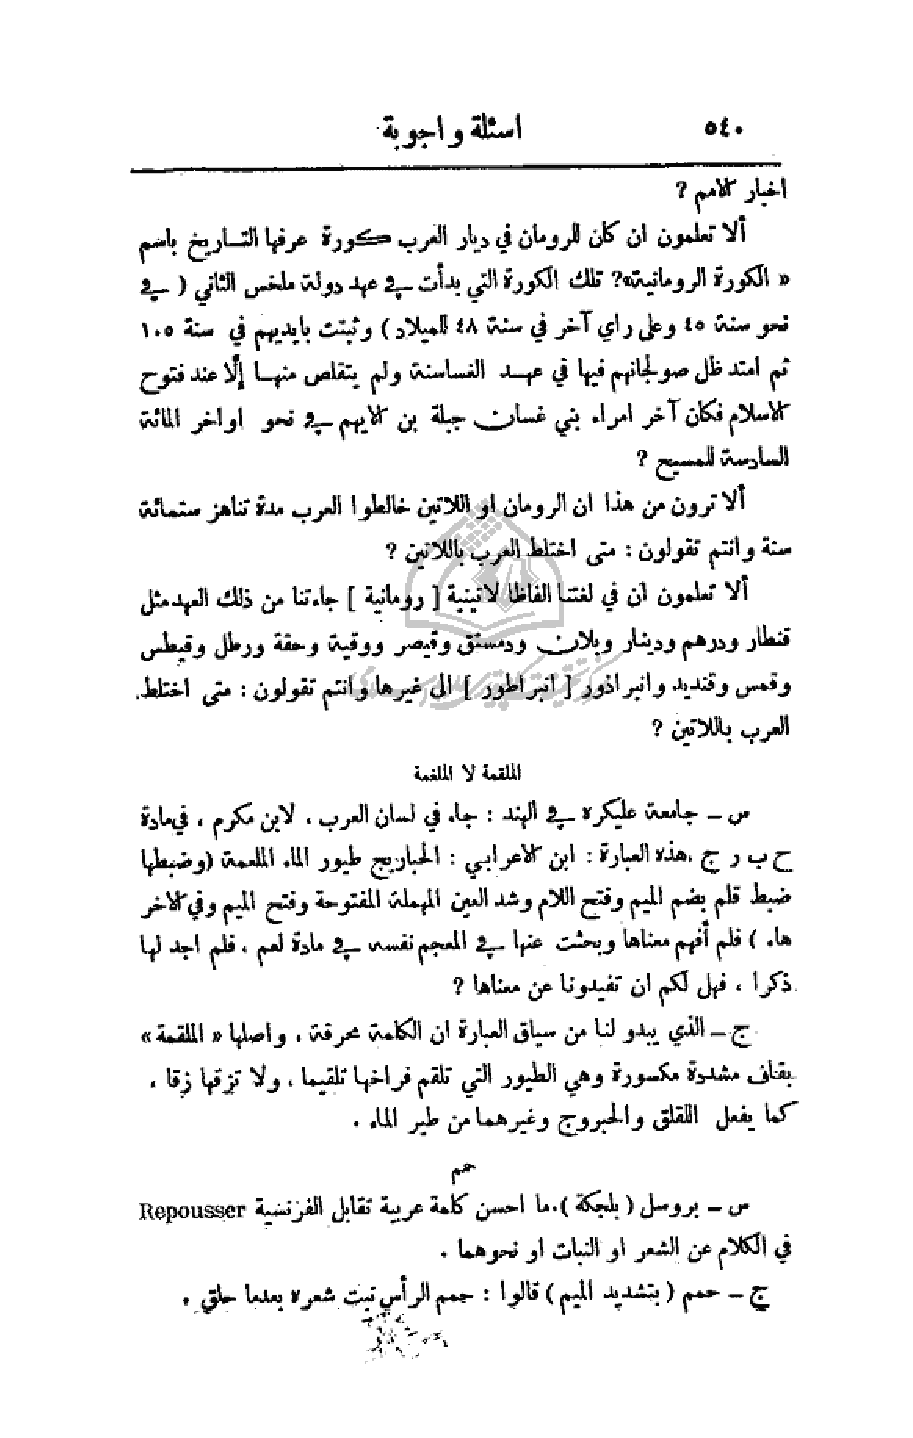 ٥٤٠
اسئلة واجوبة
اخبار الامم ؟
ألا تعلمون ان كان للرومان في ديار العرب كورة عرفها التاريخ باسم
« الكورة الرومانية»؟ تلك الكورة التي بدأت في عهد دولة ملخس الثاني ( في
نحو سنة ٤٥ وعلى راي آخر في سنة ٤٨ للميلاد ) وثبتت بايديهم في سنة ١٠٥
ثم امتد ظل صولجانهم فيها في عهد الغساسنة ولم يتقلص منها إلّا عند فتوح
الاسلام فكان آخر امراء بني غسان جبلة بن الايهم في نحو اواخر المائة
السادسة للمسيح ؟
ألا ترون من هذا ان الرومان او اللاتين خالطوا العرب مدة تناهز ستمائة
سنة وانتم تقولون : متى اختلط العرب باللاتين ؟
ألا تعلمون ان في لغتنا الفاظا لاتينية [ رومانية ] جاءتنا من ذلك العهد مثل
قنطار ودرهم ودينار وبلان ودمستق وقيصر ووقية وحقة ورطل وقيطس
وقمس وقنديد وانبراذور [ انبراطور ] الى غيرها وانتم تقولون : متى اختلط
العرب باللاتين ؟
الملقمة لا الملغمة
س – جامعة عليكره في الهند : جاء في لسان العرب ، لابن مكرم ، في مادة
ح ب ر ج ، هذه العبارة : ابن الاعرابي : الحباريج طيور الماء الملعمة (وضبطها
ضبط قلم بضم الميم وفتح اللام وشد العين المهملة المفتوحة وفتح الميم وفي الاخر
هاء ) فلم أفهم معناها وبحثت عنها في المعجم نفسه في مادة لعم ، فلم اجد لها
ذكرا ، فهل لكم ان تفيدونا عن معناها ؟
ج – الذي يبدو لنا من سياق العبارة ان الكلمة محرفة ، واصلها « الملقمة »
بقاف مشددة مكسورة وهي الطيور التي تلقم فراخها تلقيما ، ولا تزقها زقا ،
كما يفعل اللقلق والحبروج وغيرهما من طير الماء .
حمم
س – بروسل ( بلجكة ) . ما احسن كلمة عربية تقابل الفرنسية Repousser
في الكلام عن الشعر او النبات او نحوهما .
ج – حمم ( بتشديد الميم ) قالوا : حمم الرأس نبت شعره بعدما حلق ،